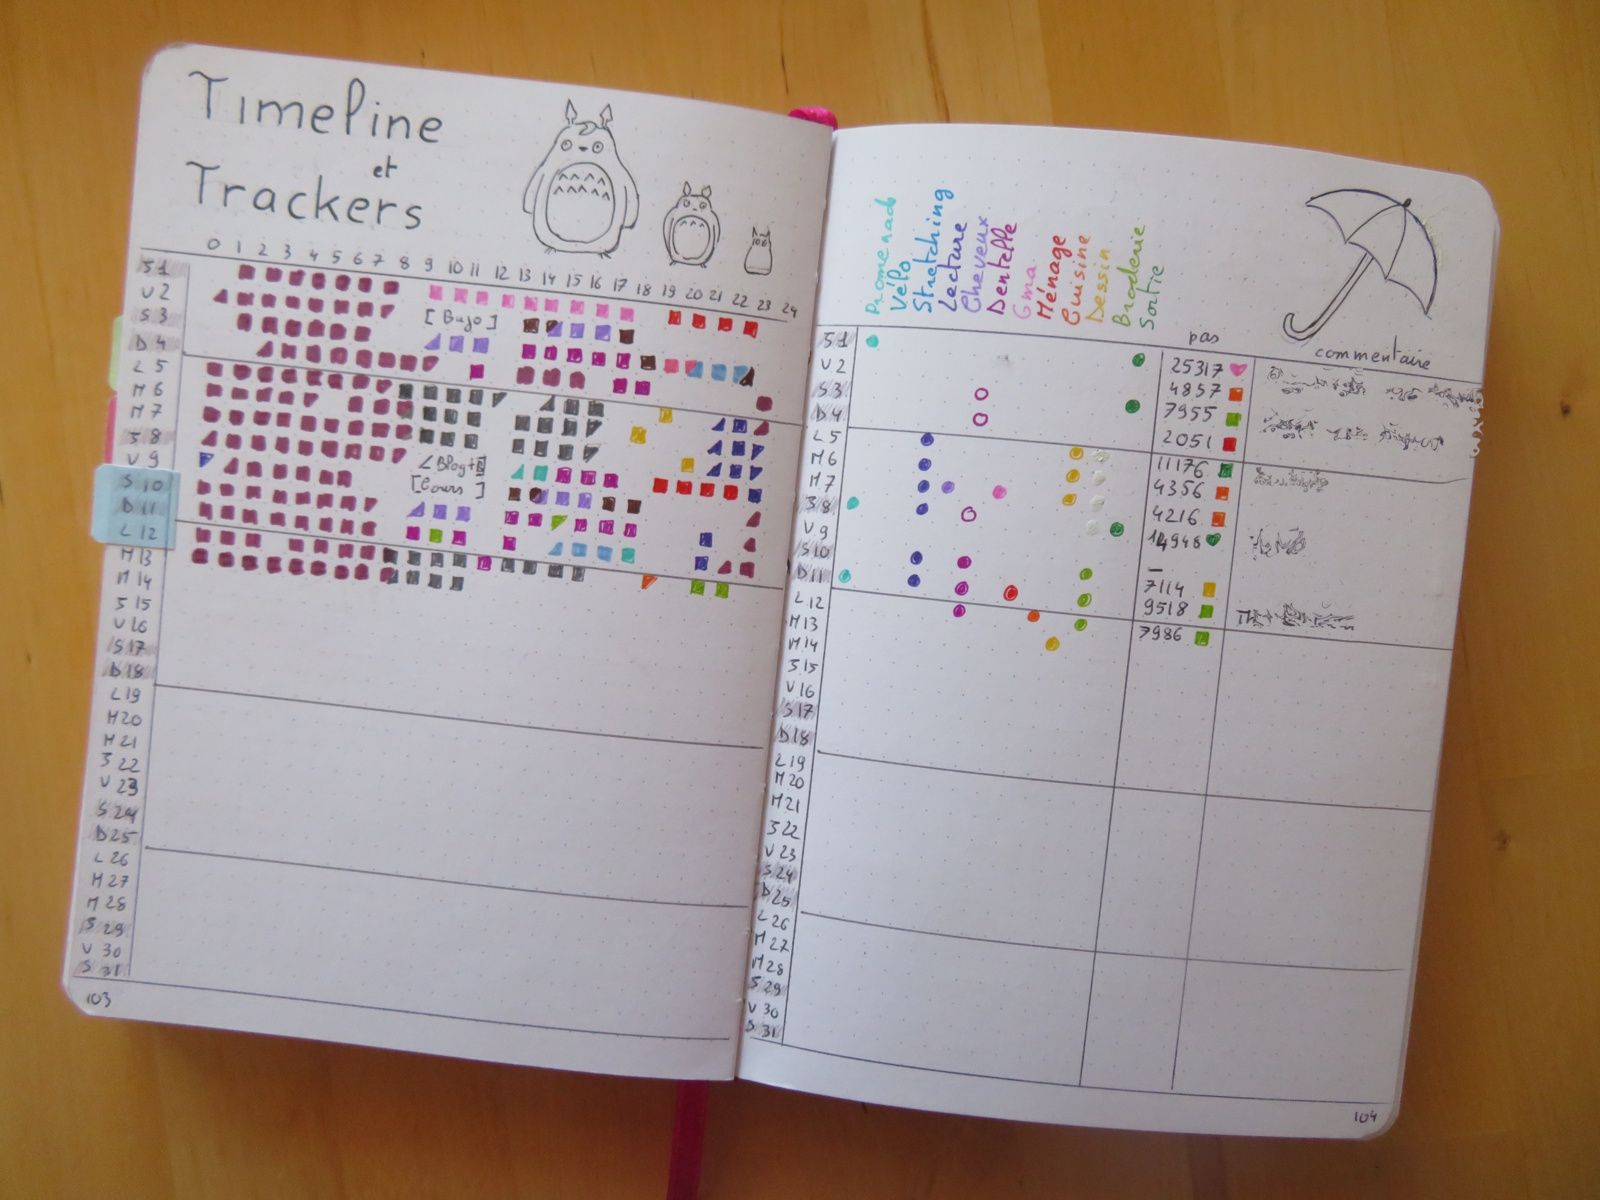 Timeline
et
Trackers
0 1 2 3 4 5 6 7 8 9 10 11 12 13 14 15 16 17 18 19 20 21 22 23 24
S 1
V 2
S 3
D 4
L 5
M 6
M 7
J 8
V 9
S 10
D 11
L 12
M 13
M 14
J 15
V 16
S 17
D 18
L 19
M 20
M 21
J 22
V 23
S 24
D 25
L 26
M 27
M 28
J 29
V 30
S 31
[Bujo]
[Cours]
103
Promenade
Vélo
Stretching
Lecture
Cheveux
Dentelle
Gma
Ménage
Cuisine
Dessin
Broderie
Sortie
pas
commentaire
J 1
V 2 25317
S 3 4857
D 4 7955
L 5 2051
M 6 11176
M 7 4356
J 8 4216
V 9 14948
S 10 –
D 11 7114
L 12 9518
M 13 7986
M 14
J 15
V 16
S 17
D 18
L 19
M 20
M 21
J 22
V 23
S 24
D 25
L 26
M 27
M 28
J 29
V 30
S 31
104